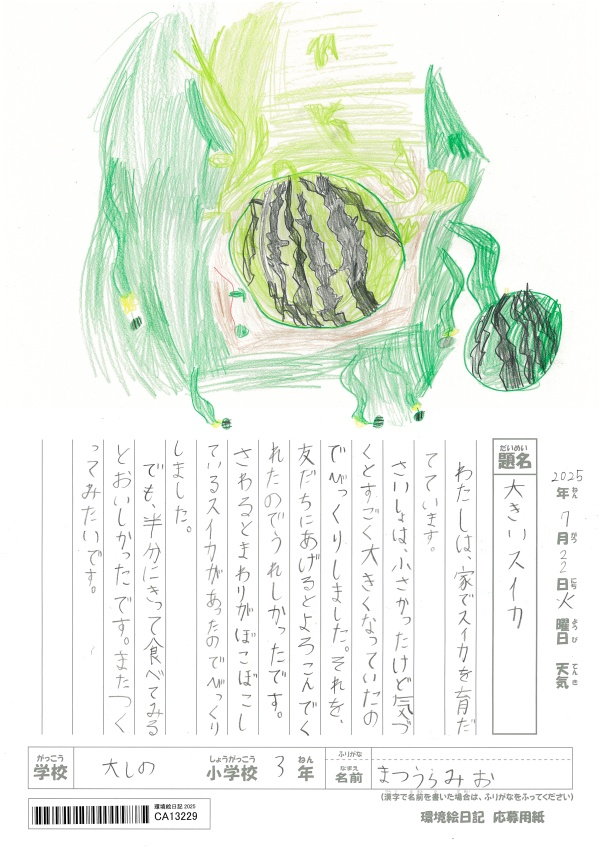 2025年7月22日火曜日 天気
ねん がつ にち ようび てんき
だいめい
題名
大きいスイカ
わたしは、家でスイカを育だ
てています。
さいしょは、小さかったけど気づ
くとすごく大きくなっていたの
でびっくりしました。それを、
友だちにあげるとよろこんでく
れたのでうれしかったです。
さわるとまわりがぼこぼこし
ているスイカがあったのでびっくり
しました。
でも、半分にきって食べてみる
とおいしかったです。またつく
ってみたいです。
がっこう
学校
大しの
しょうがっこう
小学校
3
ねん
年
ふりがな
なまえ
名前
まつうらみお
(漢字で名前を書いた場合は、ふりがなをふってください)
環境絵日記 2025
CA13229
環境絵日記 応募用紙